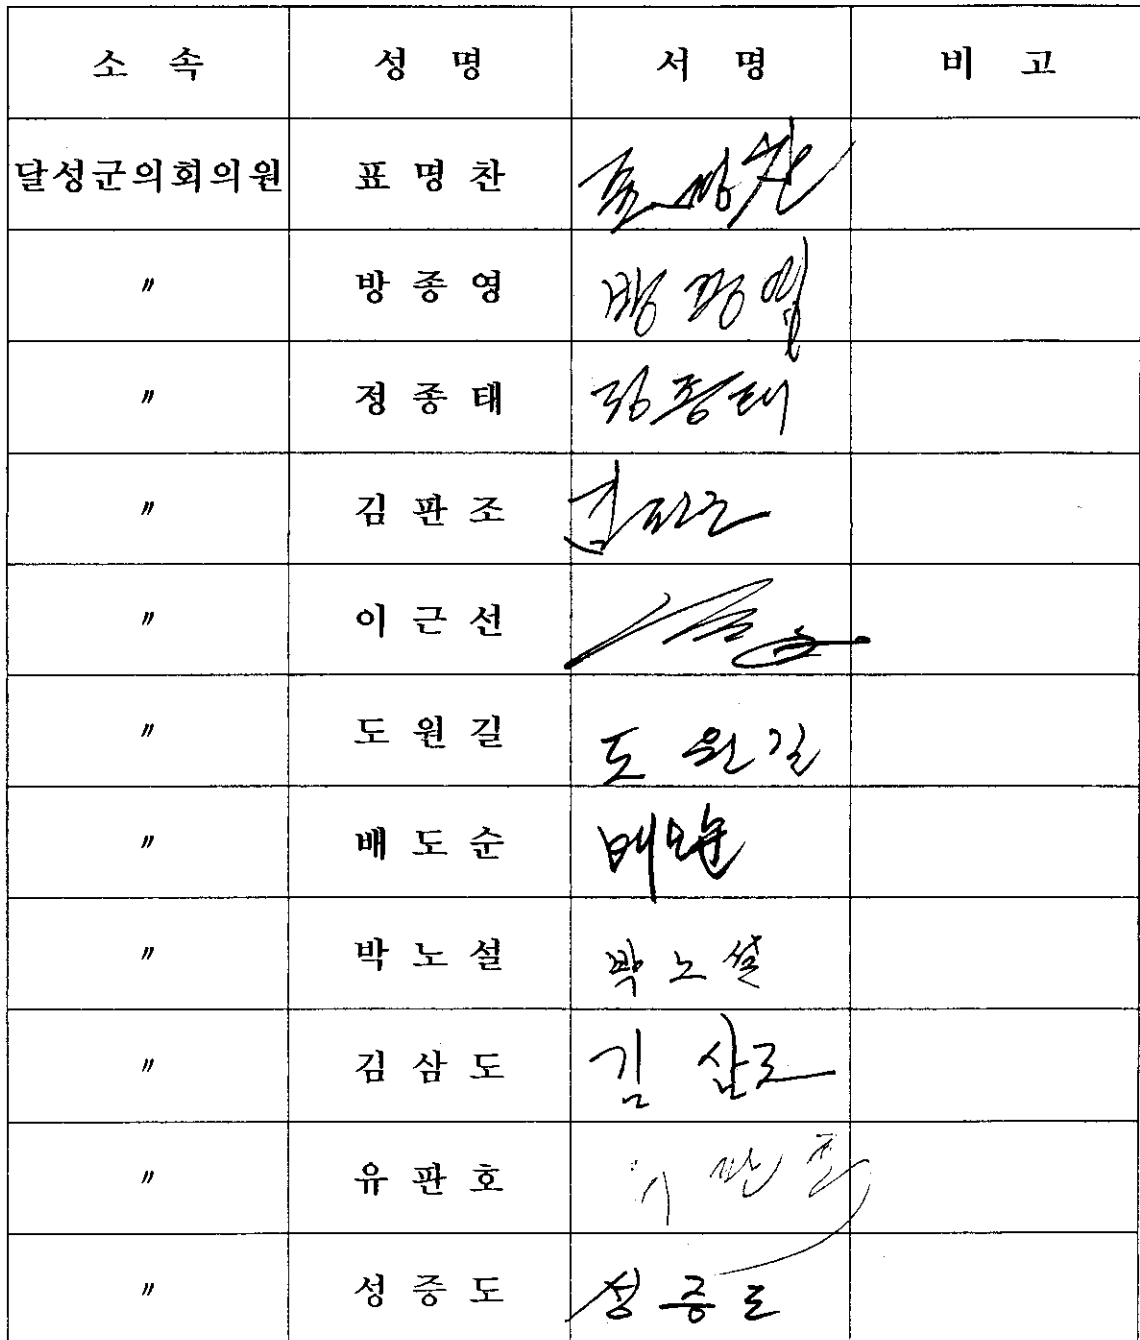 소 속 성 명 서 명 비 고
달성군의회의원 표 명 찬 표명찬
〃 방 종 영 방종영
〃 정 종 태 정종태
〃 김 판 조 김판조
〃 이 근 선
〃 도 원 길 도 원길
〃 배 도 순 배도순
〃 박 노 설 박노설
〃 김 삼 도 김 삼도
〃 유 판 호 유 판호
〃 성 증 도 성증도